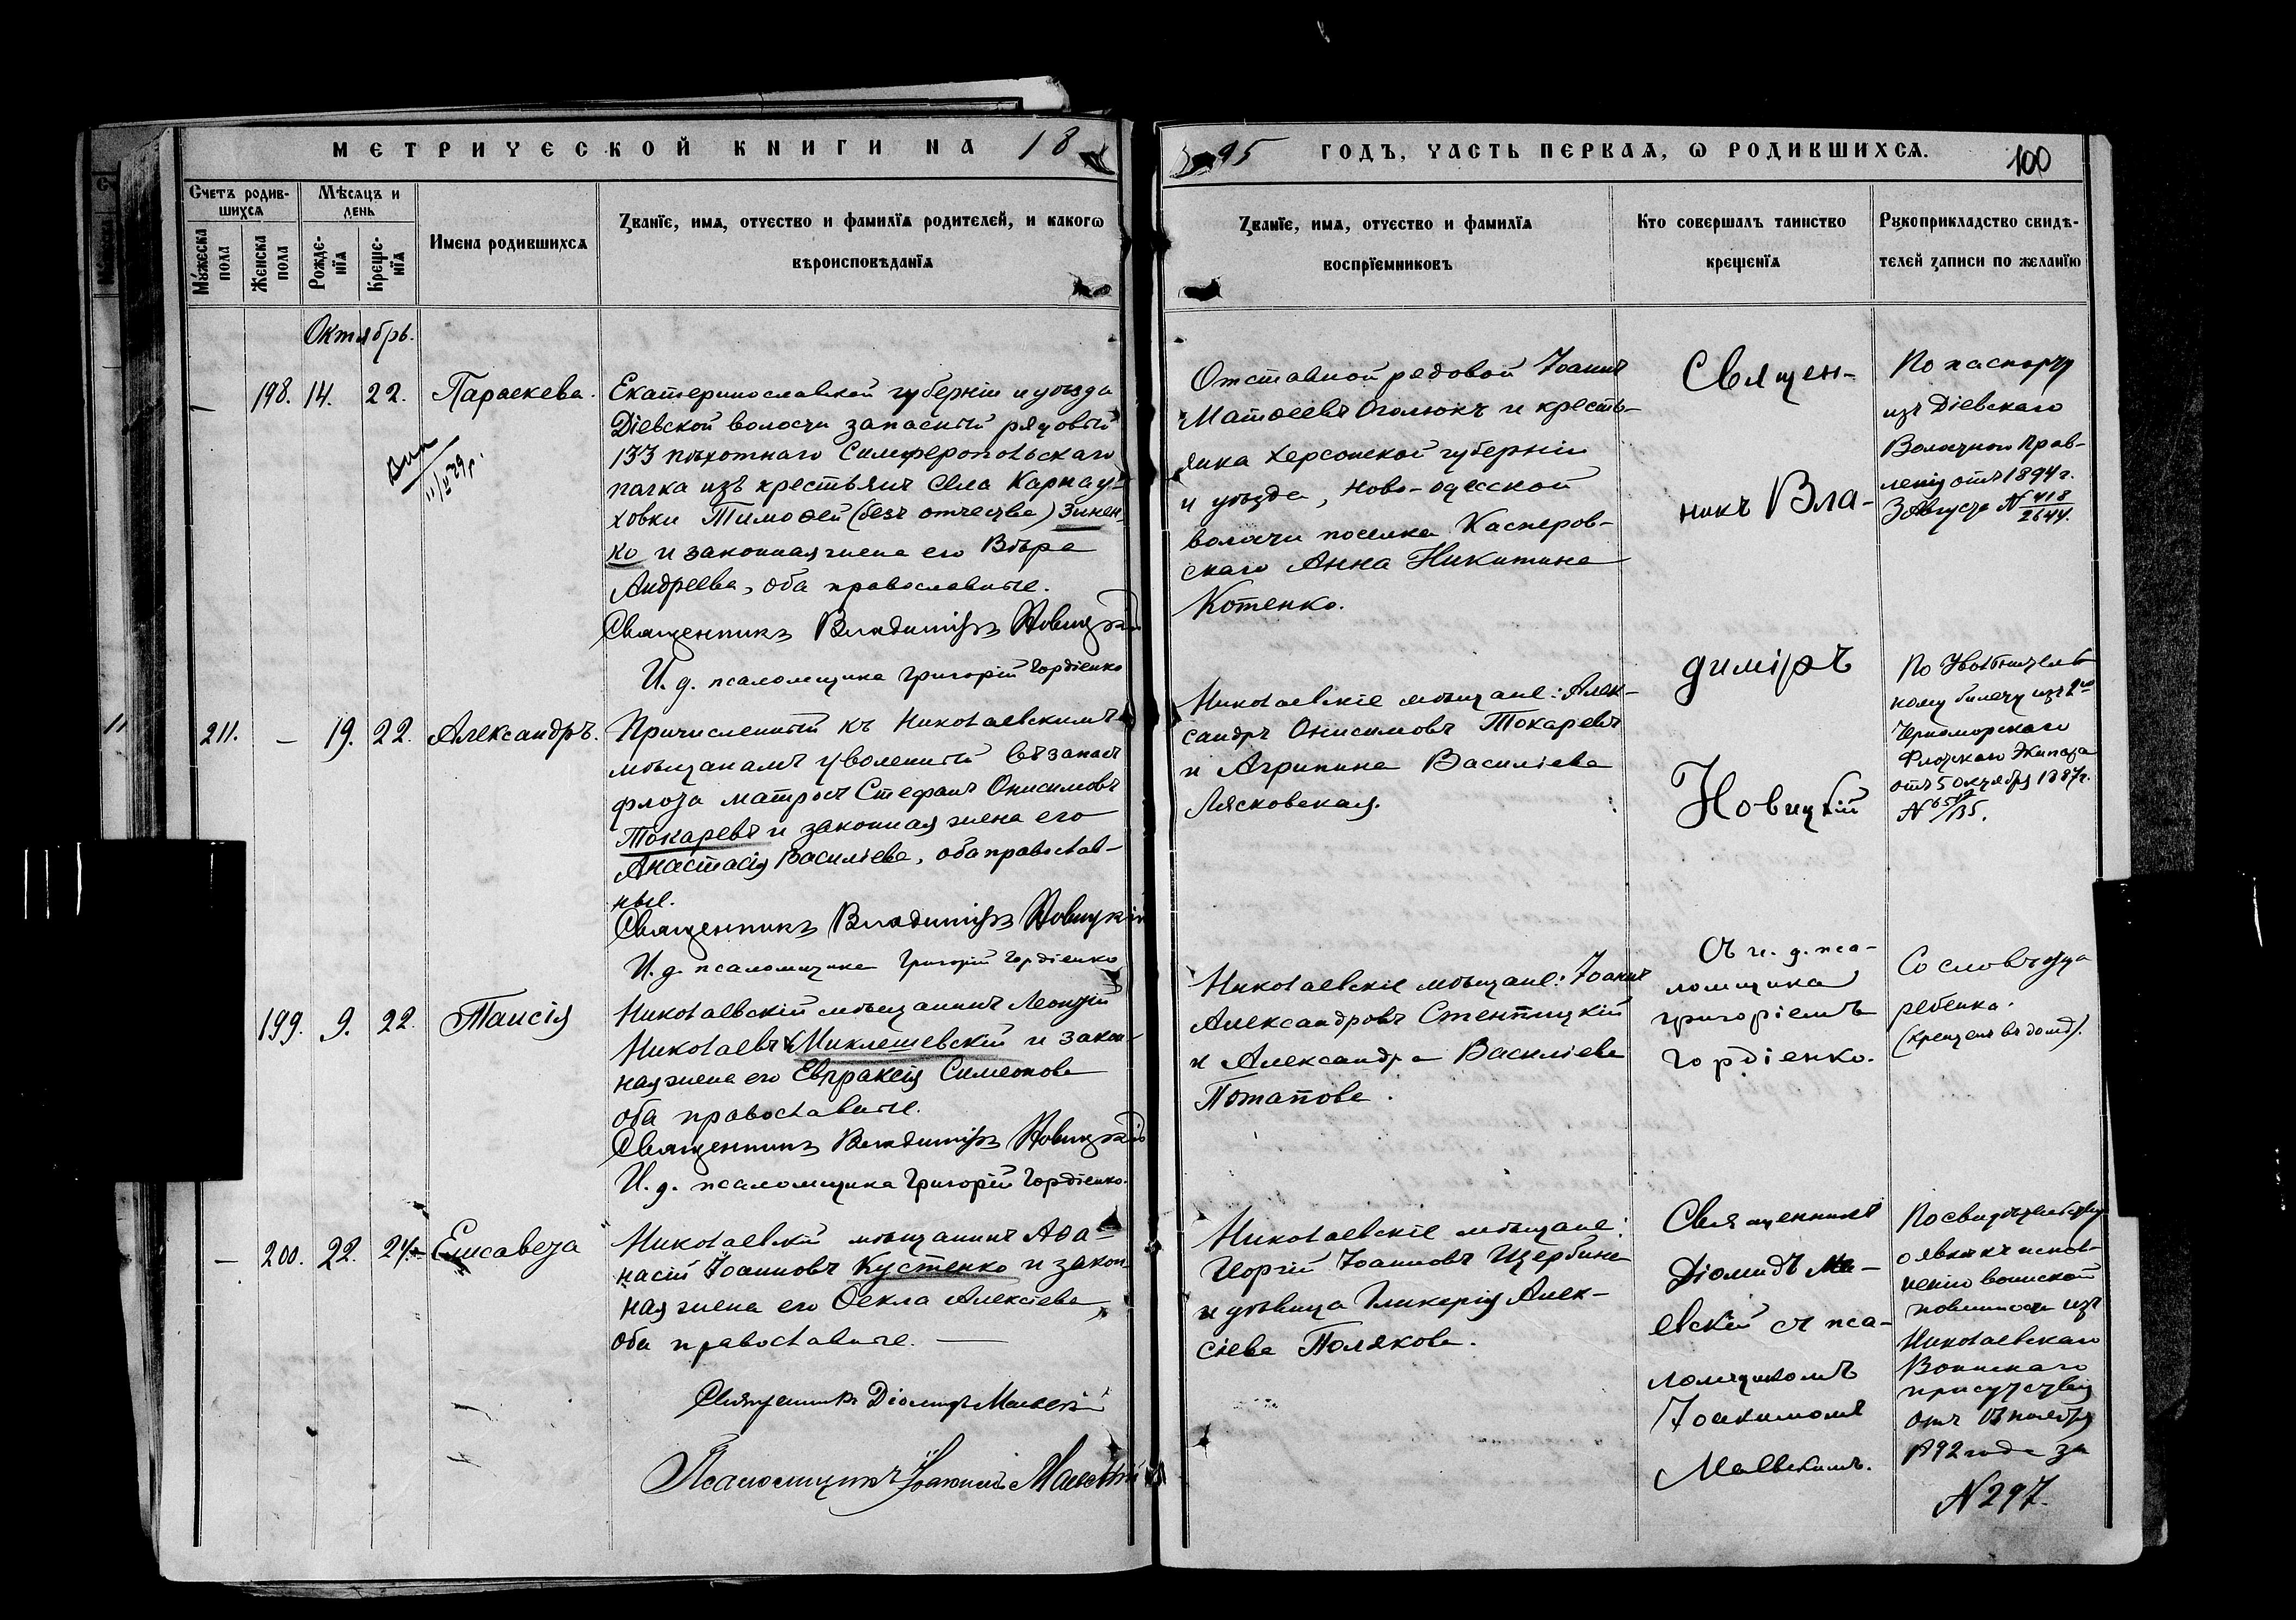 МЕТРИЧЕСКОЙ КНИГИ НА 18
95 ГОДЪ, ЧАСТЬ ПЕРВАЯ, Ѡ РОДИВШИХСЯ.
100
Счетъ родив-
шихся
Мѣсяцъ и
день
Мꙋжеска
пола
Женска
пола
Рожде-
нїя
Креще-
нїя
Имена родившихся
Званїе, имя, отчество и фамилїя родителей, и какогѡ
вѣроисповѣданїя
Званїе, имя, отчество и фамилїя
воспрїемниковъ
Кто совершалъ таинство
крещенїя
Рꙋкоприкладство свидѣ-
телей записи по желанїю
Октябрь.
— 198. 14. 22. Параскева.
Екатеринославской губерніи и уѣзда
Діевской волости запасный рядовый
133 пѣхотнаго Симферопольскаго
полка изъ крестьянъ села Карнау-
ховки Тимоѳей (безъ отчества) Зинен-
ко и законная жена его Вѣра
Андреева, оба православные.
Священникъ Владиміръ Новицкій
И. д. псаломщика Григорій Гордіенко
Отставной редовой Іоаннъ
Матѳеевъ Оголюкъ и кресть-
янка Херсонской губерніи
и уѣзда, Ново-одесской
волости поселка Касперов-
скаго Анна Никитина
Котенко.
Священ-
никъ Вла-
диміръ
Новицкій
По паспорту
изъ Діевскаго
Волостнаго Прав-
ленія отъ 1894 г.
3 Августа № 418
2644.
11
211. — 19. 22. Александръ.
Причисленный къ Николаевскимъ
мѣщанамъ уволенный въ запасъ
флота матросъ Стефанъ Онисимовъ
Токаревъ и законная жена его
Анастасія Василіева, оба православ-
ные.
Священникъ Владиміръ Новицкій
И. д. псаломщика Григорій Гордіенко
Николаевскіе мѣщане: Алек-
сандръ Онисимовъ Токаревъ
и Агрипина Василіева
Лясковская.
По Увольнитель-
ному билету изъ 2го
Черноморского
Флотскаго Экипажа
отъ 5 Октября 1887 г.
199. 9. 22. Таисія
Николаевскій мѣщанинъ Леонтій
Николаевъ Миклешевскій и закон-
ная жена его Евпраксія Симеонова
оба православные.
Священникъ Владиміръ Новицкій
И. д. псаломщика Григорій Гордіенко.
Николаевскіе мѣщане: Іоаннъ
Александровъ Стентицкій
и Александра Василіева
Потапова.
Съ и. д. пса-
ломщика
Григоріемъ
Гордіенко.
Со словъ отца
ребенка.
(крещенъ въ дому).
— 200. 22. 24 Елисавета
Николаевскій мѣщанинъ Аѳа-
насій Іоанновъ Кустенко и закон-
ная жена его Ѳекла Алексіева
оба православные. —
Священникъ Діомидъ Маевскій
Псаломщикъ Іоакимъ Маевскій
Николаевскіе мѣщане:
Георгій Іоанновъ Щербина
и дѣвица Гликерія Алек-
сіева Полякова.
Священникъ
Діомидъ Ма-
евскій съ пса-
ломщикомъ
Іоакимомъ
Маевскимъ.
По свидѣтельству
о явкѣ къ испол-
ненію воинской
повинности изъ
Николаевскаго
Воинскаго
присутствія
отъ 13 ноября
1892 года за
№ 297.